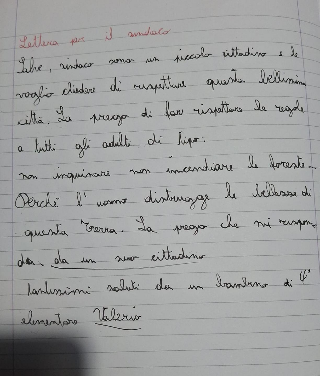 Lettera per il sindaco
Salve, sindaco sono un piccolo cittadino e le
voglio chiedere di rispettare questa bellissima
città. La prego di far rispettare le regole
a tutti gli adulti di tipo:
non inquinare non incendiare le foreste.
Perché l'uomo distrugge le bellezze di
questa Terra. La prego che mi rispon-
da. da un suo cittadino
tantissimi saluti da un bambino di
elementare Valerio